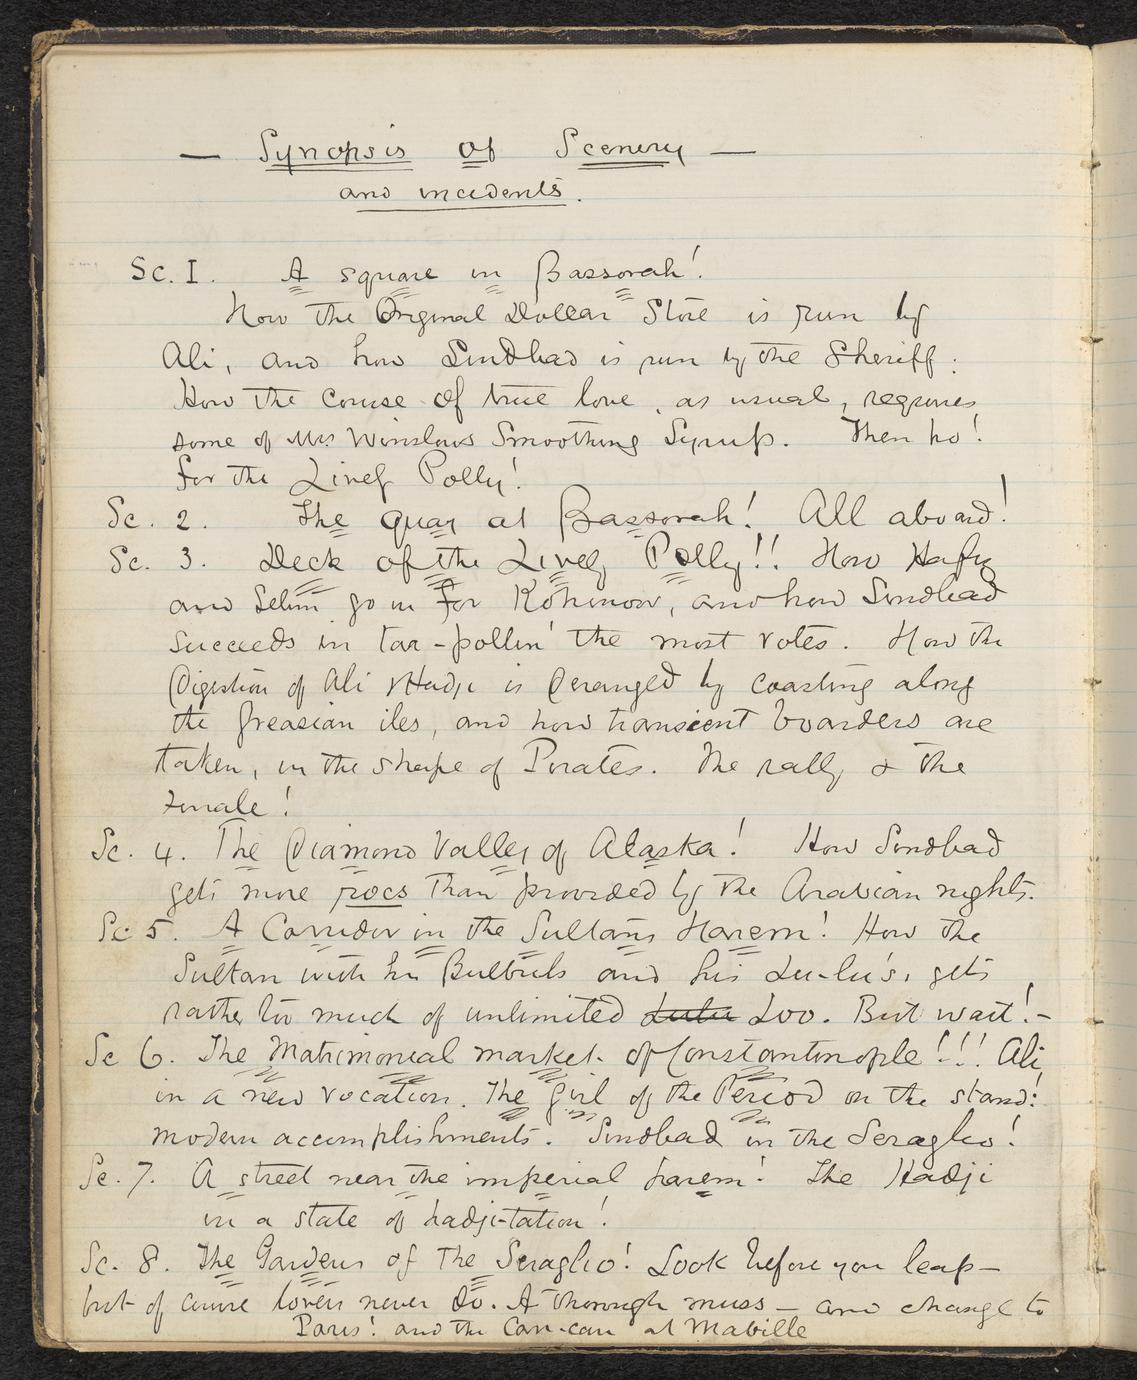 — Synopsis of Scenery —
and incidents.
Sc. I. A square in Bassorah!
How the Original Dollar Store is run by
Ali, and how Sindbad is run by the Sheriff.
How the course of true love, as usual, requires
some of Mrs Winslows Smoothing Syrup. Then ho!
for the Lively Polly!
Sc. 2. The quay at Bassorah! All aboard!
Sc. 3. Deck of the Lively Polly!! How Hafiz
and Selim go in for Kohinoor, and how Sindbad
succeeds in tar-pollin' the most votes. How the
Digestion of Ali Hadji is deranged by coasting along
the Greasian iles, and how transient boarders are
taken, in the shape of Pirates. The rally & the
Finale!
Sc. 4. The Diamond Valley of Alaska! How Sindbad
gets more rocs than provided by the Arabian nights.
Sc 5. A Corridor in the Sultans Harem! How the
Sultan with his Bulbuls and his Lu-lu's, gets
rather too much of unlimited Lulu Loo. But wait!—
Sc 6. The Matrimonial market of Constantinople!!! Ali
in a new vocation. The Girl of the Period on the stand!
modern accomplishments. Sindbad in the Seraglio!
Sc. 7. A street near the imperial harem! The Hadji
in a state of hadji-tation!
Sc. 8. The Gardens of the Seraglio! Look before you leap—
but of course lovers never do. A thorough muss — and change to
Paris! and the Can-can at Mabille